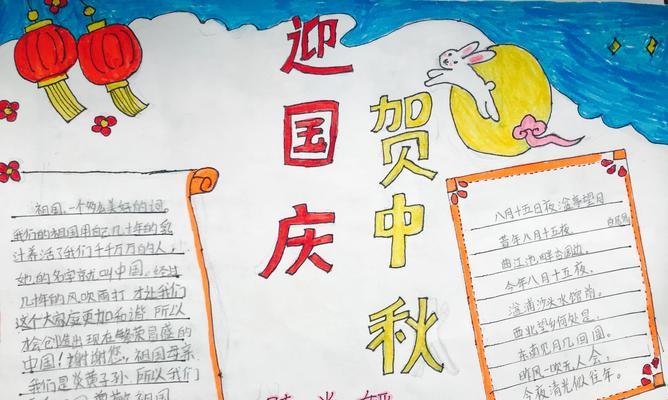 迎国庆
贺中秋
祖国,一个多么美好的词,
我们的祖国用自己几十年的
计养活了我们千千万万的人,
她的名字就叫中国。经过
几十年的风吹雨打 才让我们
这个大家庭更加和谐 所以
松 出现在繁荣昌盛的
中国!谢谢您,祖国母亲
我们是炎黄子孙 所以我们
祖国
八月十五日夜湓亭望月
白居易
昔年八月十五夜,
曲江池畔杏园边。
今年八月十五夜,
湓浦沙头水馆前。
西北望乡何处是,
东南见月几回圆。
昨风一吹无人会,
今夜清光似往年。